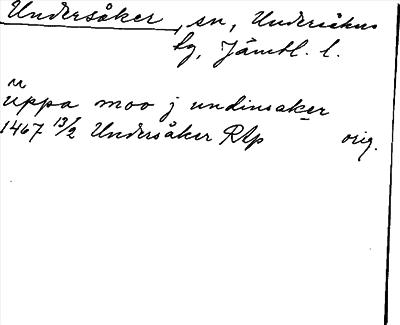 Undersåker, sn, Undersåkers
tg, Jämtl. l.
u
uppa moo j undinsaker
1467 13/2 Undersåker RAp orig.